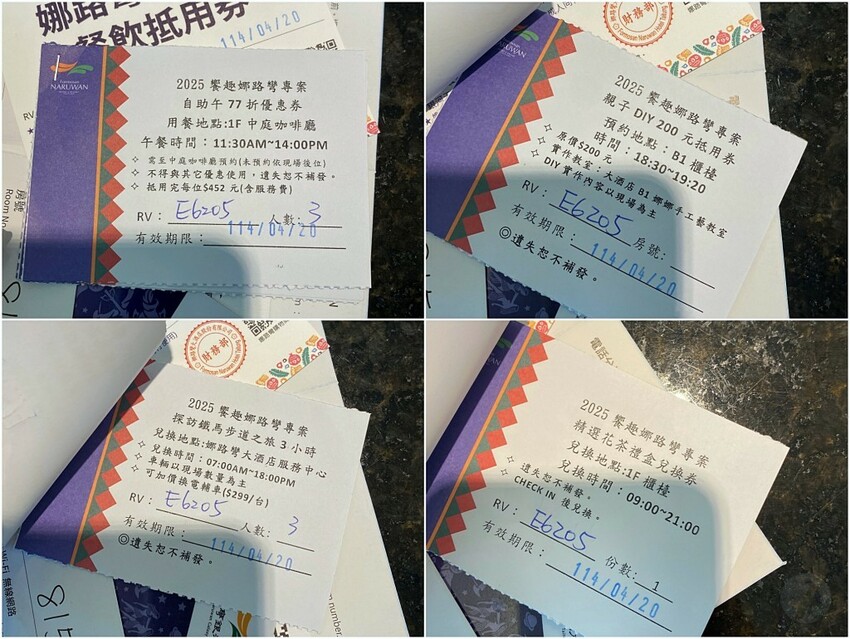 娜路
餐飲抵用券
114/04/20
RV
房號
Room No
Formosan
NARUWAN
2025 饗趣娜路彎專案
自助午 77 折優惠券
用餐地點:1F 中庭咖啡廳
午餐時間：11:30AM~14:00PM
✧ 需至中庭咖啡廳預約(未預約依現場後位)
✧ 不得與其它優惠使用，遺失恕不補發。
✧ 抵用完每位$452 元(含服務費)
RV： E6205 人數: 3
有效期限： 114/04/20
財務部
Formosan Naruwan Hotel
2025 饗趣娜路彎專案
親子 DIY 200 元抵用券
預約地點：B1 櫃檯
時間：18:30~19:20
✧ 原價$200 元
✧ 實作教室：大酒店 B1 娜娜手工藝教室
✧ DIY 實作內容以現場為主
RV： E6205 房號:
有效期限： 114/04/20
◎遺失恕不補發。
財務部
Formosan Naruwan Hotel
2025 饗趣娜路彎專案
探訪鐵馬步道之旅 3 小時
兌換地點:娜路彎大酒店服務中心
✧ 兌換時間：07:00AM~18:00PM
✧ 車輛以現場數量為主
可加價換電輔車($299/台)
RV： E6205 人數: 3
有效期限： 114/04/20
◎遺失恕不補發。
Wi-Fi 無線網路
number
電話分
2025 饗趣娜路彎專案
精選花茶禮盒兌換券
兌換地點:1F 櫃檯
兌換時間：09:00~21:00
✧ 遺失恕不補發。
✧ CHECK IN 後兌換。
RV： E6205 份數: 1
有效期限： 114/04/20